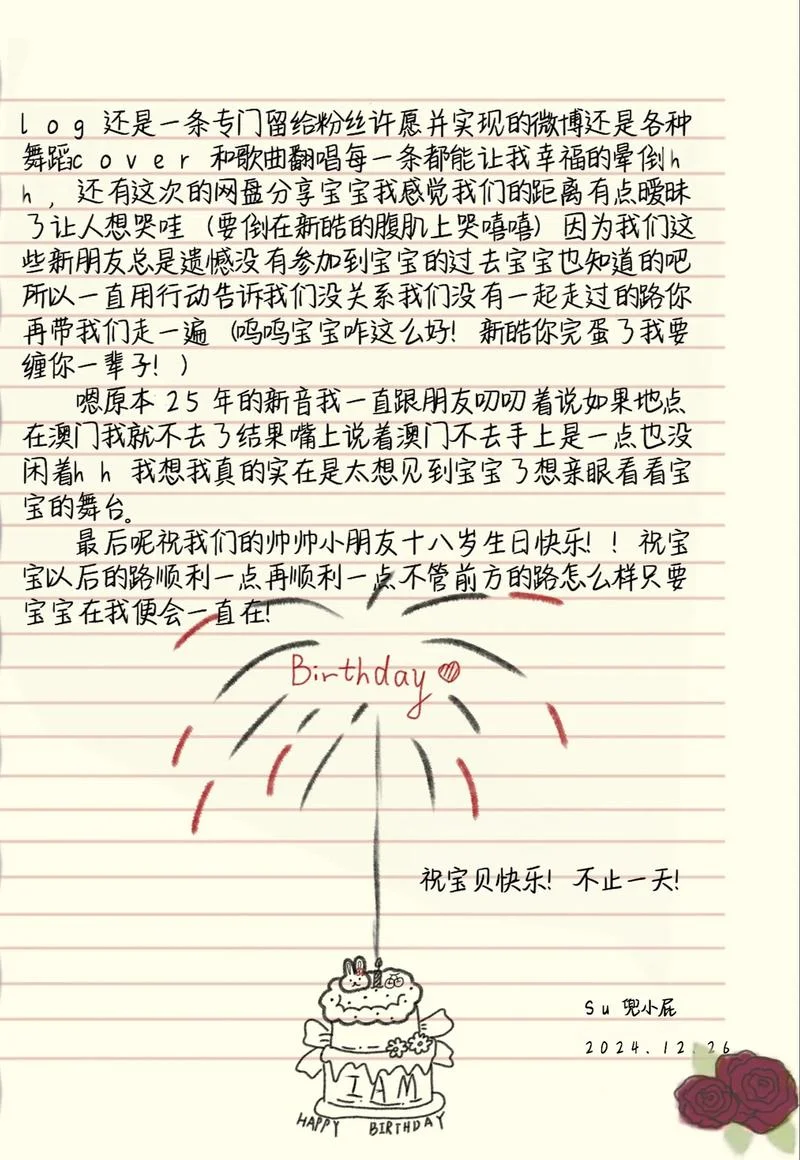 log 还是一条专门留给粉丝许愿并实现的微博还是各种
舞蹈cover 和歌曲翻唱每一条都能让我幸福的晕倒h
h，还有这次的网盘分享宝宝我感觉我们的距离有点暧昧
了让人想哭哇（要倒在新皓的腹肌上哭嘻嘻）因为我们这
些新朋友总是遗憾没有参加到宝宝的过去宝宝也知道的吧
所以一直用行动告诉我们没关系我们没有一起走过的路你
再带我们走一遍（呜呜宝宝咋这么好！新皓你完蛋了我要
缠你一辈子！）
嗯原本25年的新音我一直跟朋友叨叨着说如果地点
在澳门我就不去了结果嘴上说着澳门不去手上是一点也没
闲着hh 我想我真的实在是太想见到宝宝了想亲眼看看宝
宝的舞台。
最后呢祝我们的帅帅小朋友十八岁生日快乐！！祝宝
宝以后的路顺利一点再顺利一点不管前方的路怎么样只要
宝宝在我便会一直在！
Birthday
祝宝贝快乐！不止一天！
Su 兜小屁
2024.12.26
I AM
HAPPY BIRTHDAY